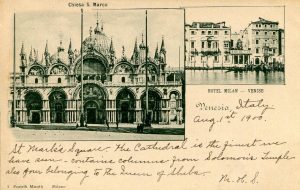 Chiesa S. Marco
HOTEL MILAN — VENISE
Venezia, Italy
Aug 1st 1900.
St Mark's Square. The Cathedral is the finest we
have seen - contains columns from Solomon's Temple
also door belonging to the Queen of Sheba.
M. H. S.
Fratelli Milano